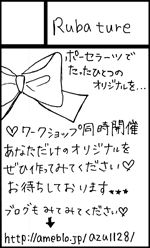 Rubature
ポーセラーツで
たったひとつの
オリジナルを...
♡ワークショップ同時開催
あなただけのオリジナルを
ぜひ作ってみてください♡
お待ちしております★★★
ブログもみてみてください♡
↓
http://ameblo.jp/azu1128/